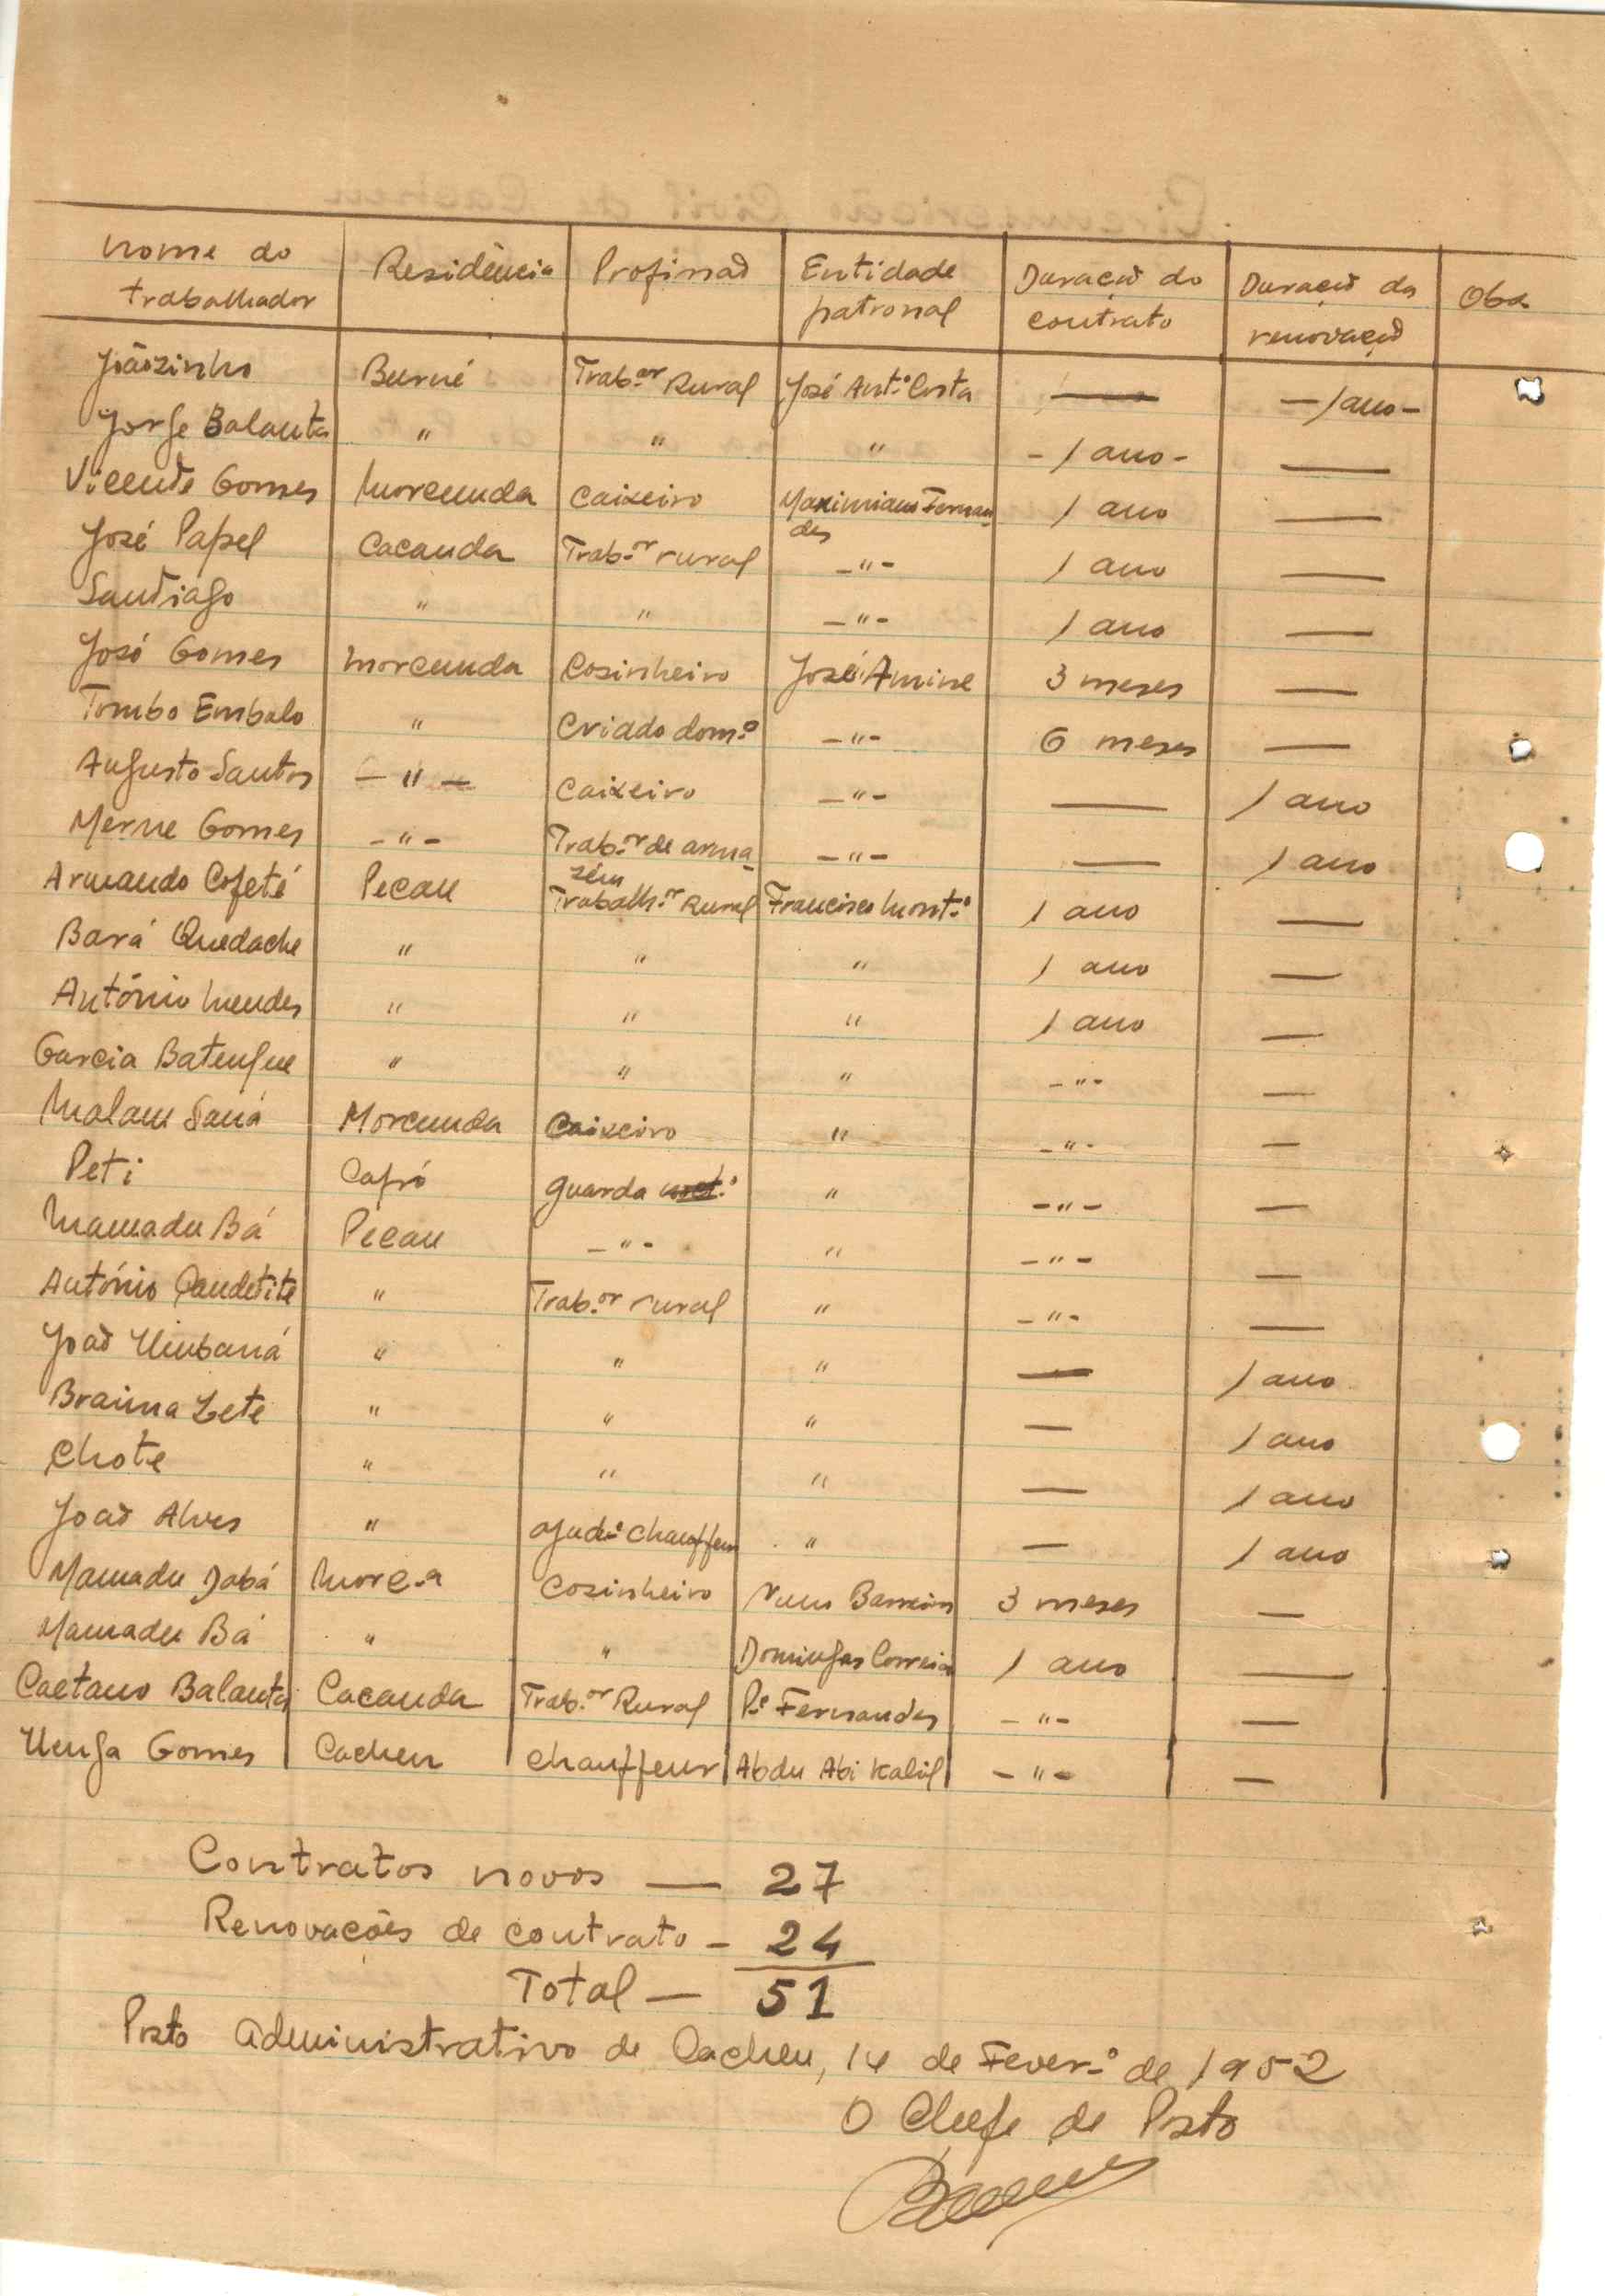 Nome do trabalhador | Residência | Profissão | Entidade patronal | Duração do contrato | Duração da renovação | Obs
Joãozinho | Burné | Trab.or Rural | José Ant.º Costa | — | — 1 ano —
Jorge Balanta | " | " | " | - 1 ano - | —
Vicente Gomes | Morcunda | Caixeiro | Maximiano Fernandes | 1 ano | —
José Papel | Cacanda | Trab.or rural | - " - | 1 ano | —
Santiago | " | " | - " - | 1 ano | —
José Gomes | Morcunda | Cosinheiro | José Amine | 3 meses | —
Tombo Embalo | " | Criado dom.º | - " - | 6 meses | —
Augusto Santos | - " - | Caixeiro | - " - | — | 1 ano
Merne Gomes | - " - | Trab.or de armazém | - " - | — | 1 ano
Armando Cofeté | Pecau | Trabalh.or Rural | Francisco Mont.º | 1 ano | —
Bará Quedache | " | " | " | 1 ano | —
António Mendes | " | " | " | 1 ano | —
Garcia Batengue | " | " | " | - " - | —
Malam Saná | Morcunda | Caixeiro | " | - " - | —
Peti | Capó | Guarda | " | - " - | —
Mamadu Bá | Pecau | - " - | " | - " - | —
António | " | Trab.or rural | " | - " - | —
João | " | " | " | — | 1 ano
Braima Lete | " | " | " | — | 1 ano
Chote | " | " | " | — | 1 ano
João Alves | " | Ajud.e Chauffeur | " | — | 1 ano
Mamadu Dabá | Morc.a | Cosinheiro | Nuno Barreiros | 3 meses | —
Mamadu Bá | " | " | Domingas Correia | 1 ano | —
Caetano Balanta | Cacanda | Trab.or Rural | P.e Fernandes | - " - | —
Unga Gomes | Cacheu | Chauffeur | Abdu Abi Kalil | - " - | —
Contratos novos — 27
Renovações de contrato - 24
Total — 51
Posto Administrativo de Cacheu, 14 de Fever.º de 1952
O Chefe de Posto